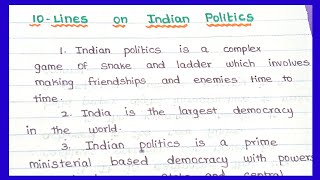 10-Lines on Indian Politics
1. Indian politics is a complex
game of snake and ladder which involves
making friendships and enemies time to
time.
2. India is the largest democracy
in the world.
3. Indian politics is a prime
ministerial based democracy with powers
state and central